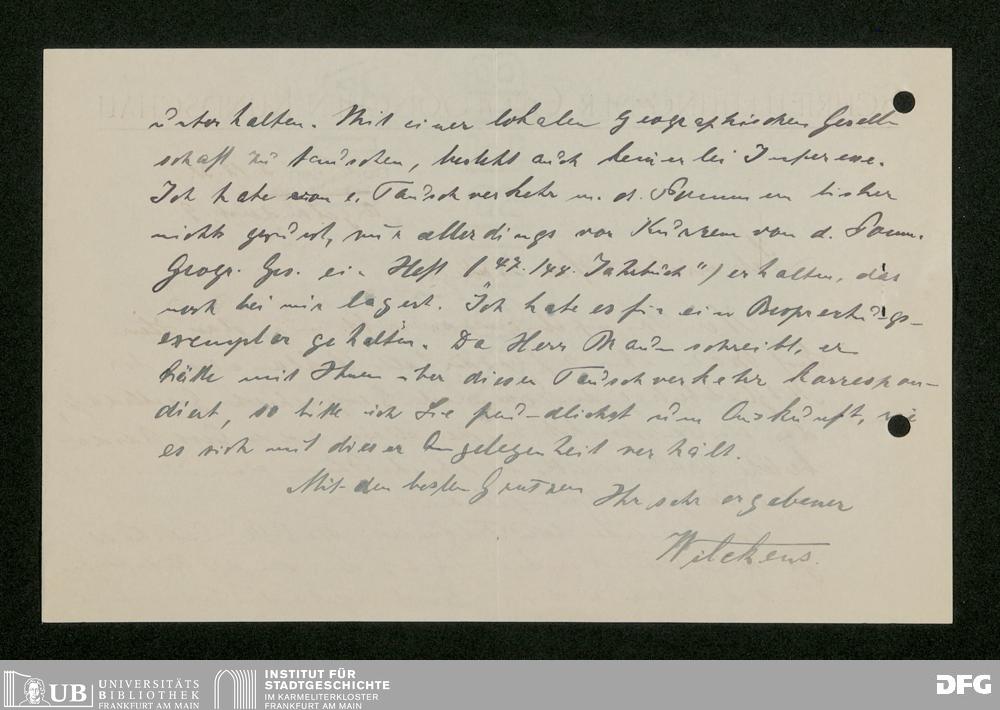 unterhalten. Mit einer lokalen Geographischen Gesell-
schaft zu tauschen, besteht auch keinerlei Interesse.
Ich habe von e. Tauschverkehr m. d. Pommern bisher
nichts gewusst, nur allerdings vor Kurzem von d. Pomm.
Geogr. Ges. ein Heft („47./48. Jahrbuch") erhalten, das
noch bei mir lagert. Ich habe es für ein Besprechungs-
exemplar gehalten. Da Herr Braun schreibt, er
hätte mit Ihnen über diesen Tauschverkehr korrespon-
diert, so bitte ich Sie freundlichst um Auskunft, wie
es sich mit dieser Angelegenheit verhält.
Mit den besten Grüssen Ihr sehr ergebener
Wilckens.
UB UNIVERSITÄTS
BIBLIOTHEK
FRANKFURT AM MAIN
INSTITUT FÜR
STADTGESCHICHTE
IM KARMELITERKLOSTER
FRANKFURT AM MAIN
DFG